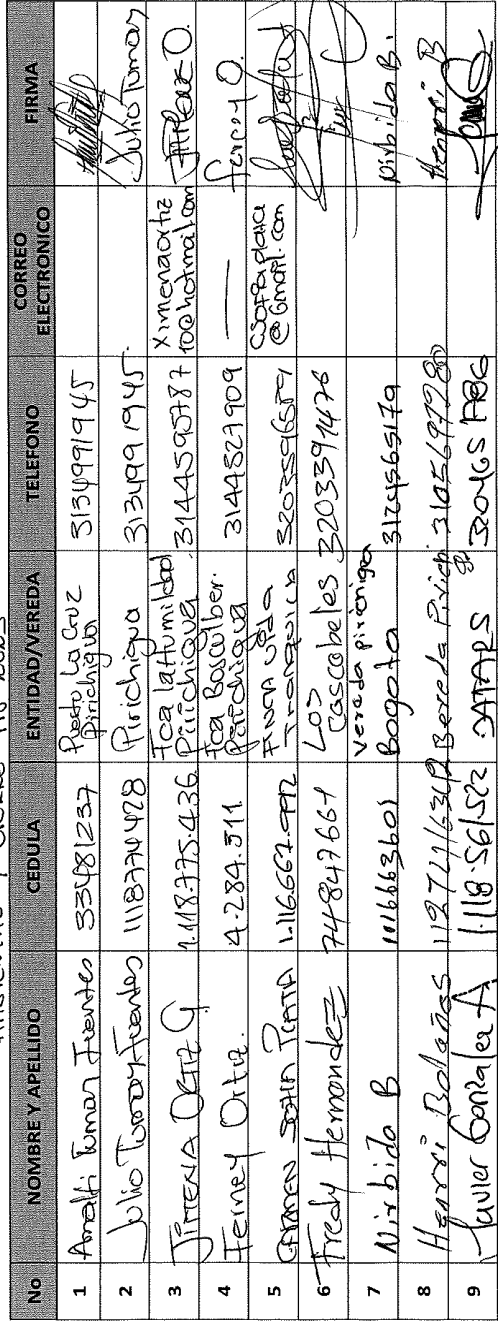 No NOMBRE Y APELLIDO CEDULA ENTIDAD/VEREDA TELEFONO CORREO ELECTRONICO FIRMA
1 Amalfi Tumay Fuentes 33481237 Puesto La Cruz Pirichigua 3134991945
2 Julio Tumay Fuentes 1118774428 Pirichigua 3134991945 Julio Tumay
3 JIMENA ORTIZ G 1.118.775.436 Fca la Humildad Pirichigua 3144595787 Ximenaortiz 10@hotmail.com
4 Ferney Ortiz. 4.284.511 Fca Pirichigua 3144827909 — Ferney O.
5 CARMEN SOFIA PLATA 1.116.667.992 FINCA Vida Tranquila 3203596579 @Gmail.com
6 Fredy Hernandez 74847661 Los Cascabeles 3203391476
7 Nirbida B 1016663601 vereda Bogota 3124565179 Nirbida B.
8 Henrri Bolaños Bereda Henrri B
9 Javier Gonzalez A 1.118.561.522